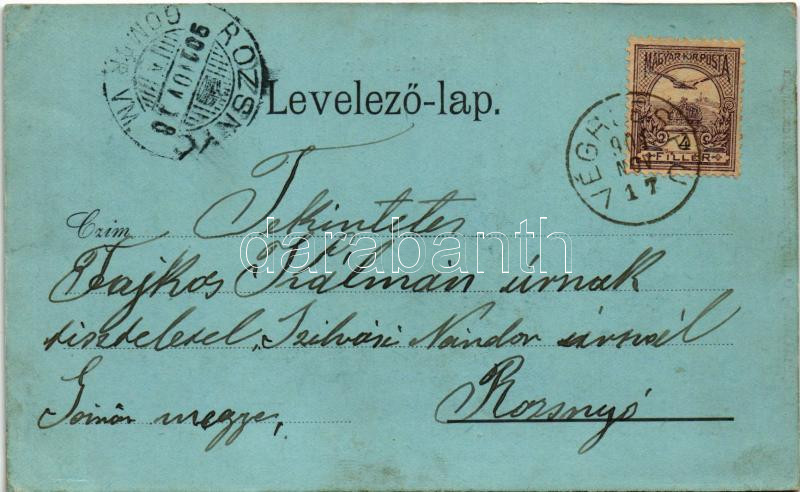 ROZSNYÓ
GÖMÖR M
901 NOV 18
Levelező-lap.
MAGYAR KIR. POSTA
4
FILLÉR
VÉGH
NOV
17
Czim
Tekintetes
Fajkos Kálmán úrnak
tisztelettel, Szilvási Nándor úrnál
Rozsnyó
Gömör megye,
darabanth